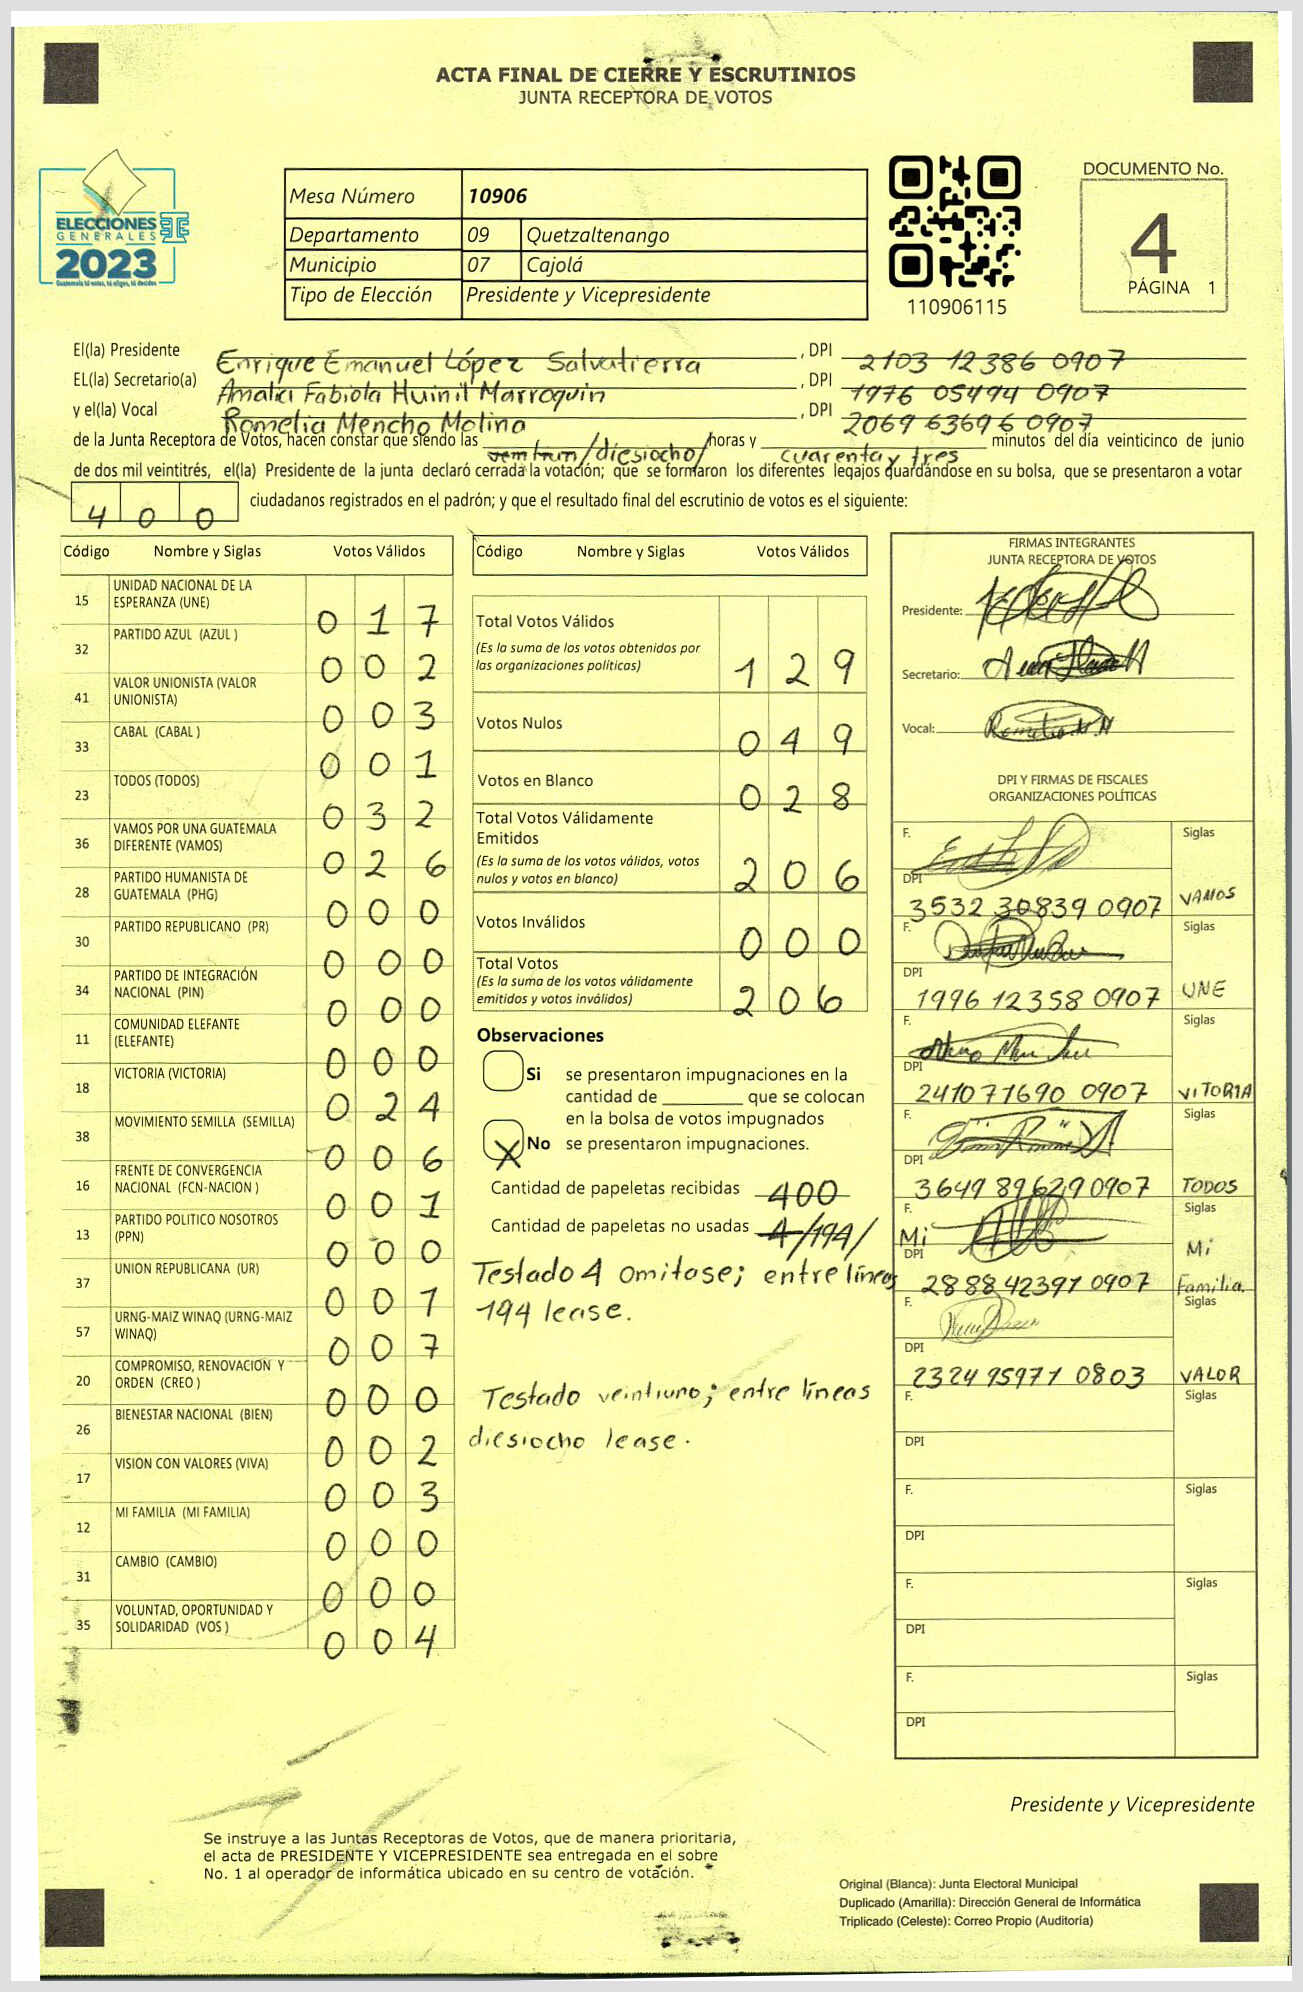 ACTA FINAL DE CIERRE Y ESCRUTINIOS
JUNTA RECEPTORA DE VOTOS
ELECCIONES
GENERALES
2023
Guatemala tú votas, tú eliges, tú decides
Mesa Número 10906
Departamento 09 Quetzaltenango
Municipio 07 Cajolá
Tipo de Elección Presidente y Vicepresidente
110906115
DOCUMENTO No.
4
PÁGINA 1
El(la) Presidente Enrique Emanuel López Salvatierra, DPI 2103 12386 0907
EL(la) Secretario(a) Amalia Fabiola Huinil Marroquin, DPI 1976 05494 0907
y el(la) Vocal Romelia Mencho Molina, DPI 2069 63696 0907
de la Junta Receptora de Votos, hacen constar que siendo las /diesiocho/ horas y cuarenta y tres minutos del día veinticinco de junio
de dos mil veintitrés, el(la) Presidente de la junta declaró cerrada la votación; que se formaron los diferentes legajos guardándose en su bolsa, que se presentaron a votar
400 ciudadanos registrados en el padrón; y que el resultado final del escrutinio de votos es el siguiente:
Código Nombre y Siglas Votos Válidos
15 UNIDAD NACIONAL DE LA ESPERANZA (UNE) 0 1 7
32 PARTIDO AZUL (AZUL ) 0 0 2
41 VALOR UNIONISTA (VALOR UNIONISTA) 0 0 3
33 CABAL (CABAL ) 0 0 1
23 TODOS (TODOS) 0 3 2
36 VAMOS POR UNA GUATEMALA DIFERENTE (VAMOS) 0 2 6
28 PARTIDO HUMANISTA DE GUATEMALA (PHG) 0 0 0
30 PARTIDO REPUBLICANO (PR) 0 0 0
34 PARTIDO DE INTEGRACIÓN NACIONAL (PIN) 0 0 0
11 COMUNIDAD ELEFANTE (ELEFANTE) 0 0 0
18 VICTORIA (VICTORIA) 0 2 4
38 MOVIMIENTO SEMILLA (SEMILLA) 0 0 6
16 FRENTE DE CONVERGENCIA NACIONAL (FCN-NACION ) 0 0 1
13 PARTIDO POLITICO NOSOTROS (PPN) 0 0 0
37 UNION REPUBLICANA (UR) 0 0 1
57 URNG-MAIZ WINAQ (URNG-MAIZ WINAQ) 0 0 7
20 COMPROMISO, RENOVACION Y ORDEN (CREO ) 0 0 0
26 BIENESTAR NACIONAL (BIEN) 0 0 2
17 VISION CON VALORES (VIVA) 0 0 3
12 MI FAMILIA (MI FAMILIA) 0 0 0
31 CAMBIO (CAMBIO) 0 0 0
35 VOLUNTAD, OPORTUNIDAD Y SOLIDARIDAD (VOS ) 0 0 4
Código Nombre y Siglas Votos Válidos
Total Votos Válidos
(Es la suma de los votos obtenidos por
las organizaciones políticas) 1 2 9
Votos Nulos 0 4 9
Votos en Blanco 0 2 8
Total Votos Válidamente
Emitidos
(Es la suma de los votos válidos, votos
nulos y votos en blanco) 2 0 6
Votos Inválidos 0 0 0
Total Votos
(Es la suma de los votos válidamente
emitidos y votos inválidos) 2 0 6
Observaciones
Si se presentaron impugnaciones en la
cantidad de ________ que se colocan
en la bolsa de votos impugnados
X No se presentaron impugnaciones.
Cantidad de papeletas recibidas 400
Cantidad de papeletas no usadas 4/194/
Testado 4 omitase; entre líneas
194 lease.
Testado veintiuno; entre líneas
diesiocho lease.
FIRMAS INTEGRANTES
JUNTA RECEPTORA DE VOTOS
Presidente:
Secretario:
Vocal:
DPI Y FIRMAS DE FISCALES
ORGANIZACIONES POLÍTICAS
F. Siglas
DPI 3532 30839 0907 VAMOS
F. Siglas
DPI 1996 12358 0907 UNE
F. Siglas
DPI 2410 71690 0907 VITORIA
F. Siglas
DPI 3649 89629 0907 TODOS
F. Siglas
Mi
DPI 2888 42391 0907 Mi Familia.
F. Siglas
DPI 2324 95971 0803 VALOR
F. Siglas
DPI
F. Siglas
DPI
F. Siglas
DPI
F. Siglas
DPI
Presidente y Vicepresidente
Se instruye a las Juntas Receptoras de Votos, que de manera prioritaria,
el acta de PRESIDENTE Y VICEPRESIDENTE sea entregada en el sobre
No. 1 al operador de informática ubicado en su centro de votación.
Original (Blanca): Junta Electoral Municipal
Duplicado (Amarilla): Dirección General de Informática
Triplicado (Celeste): Correo Propio (Auditoría)